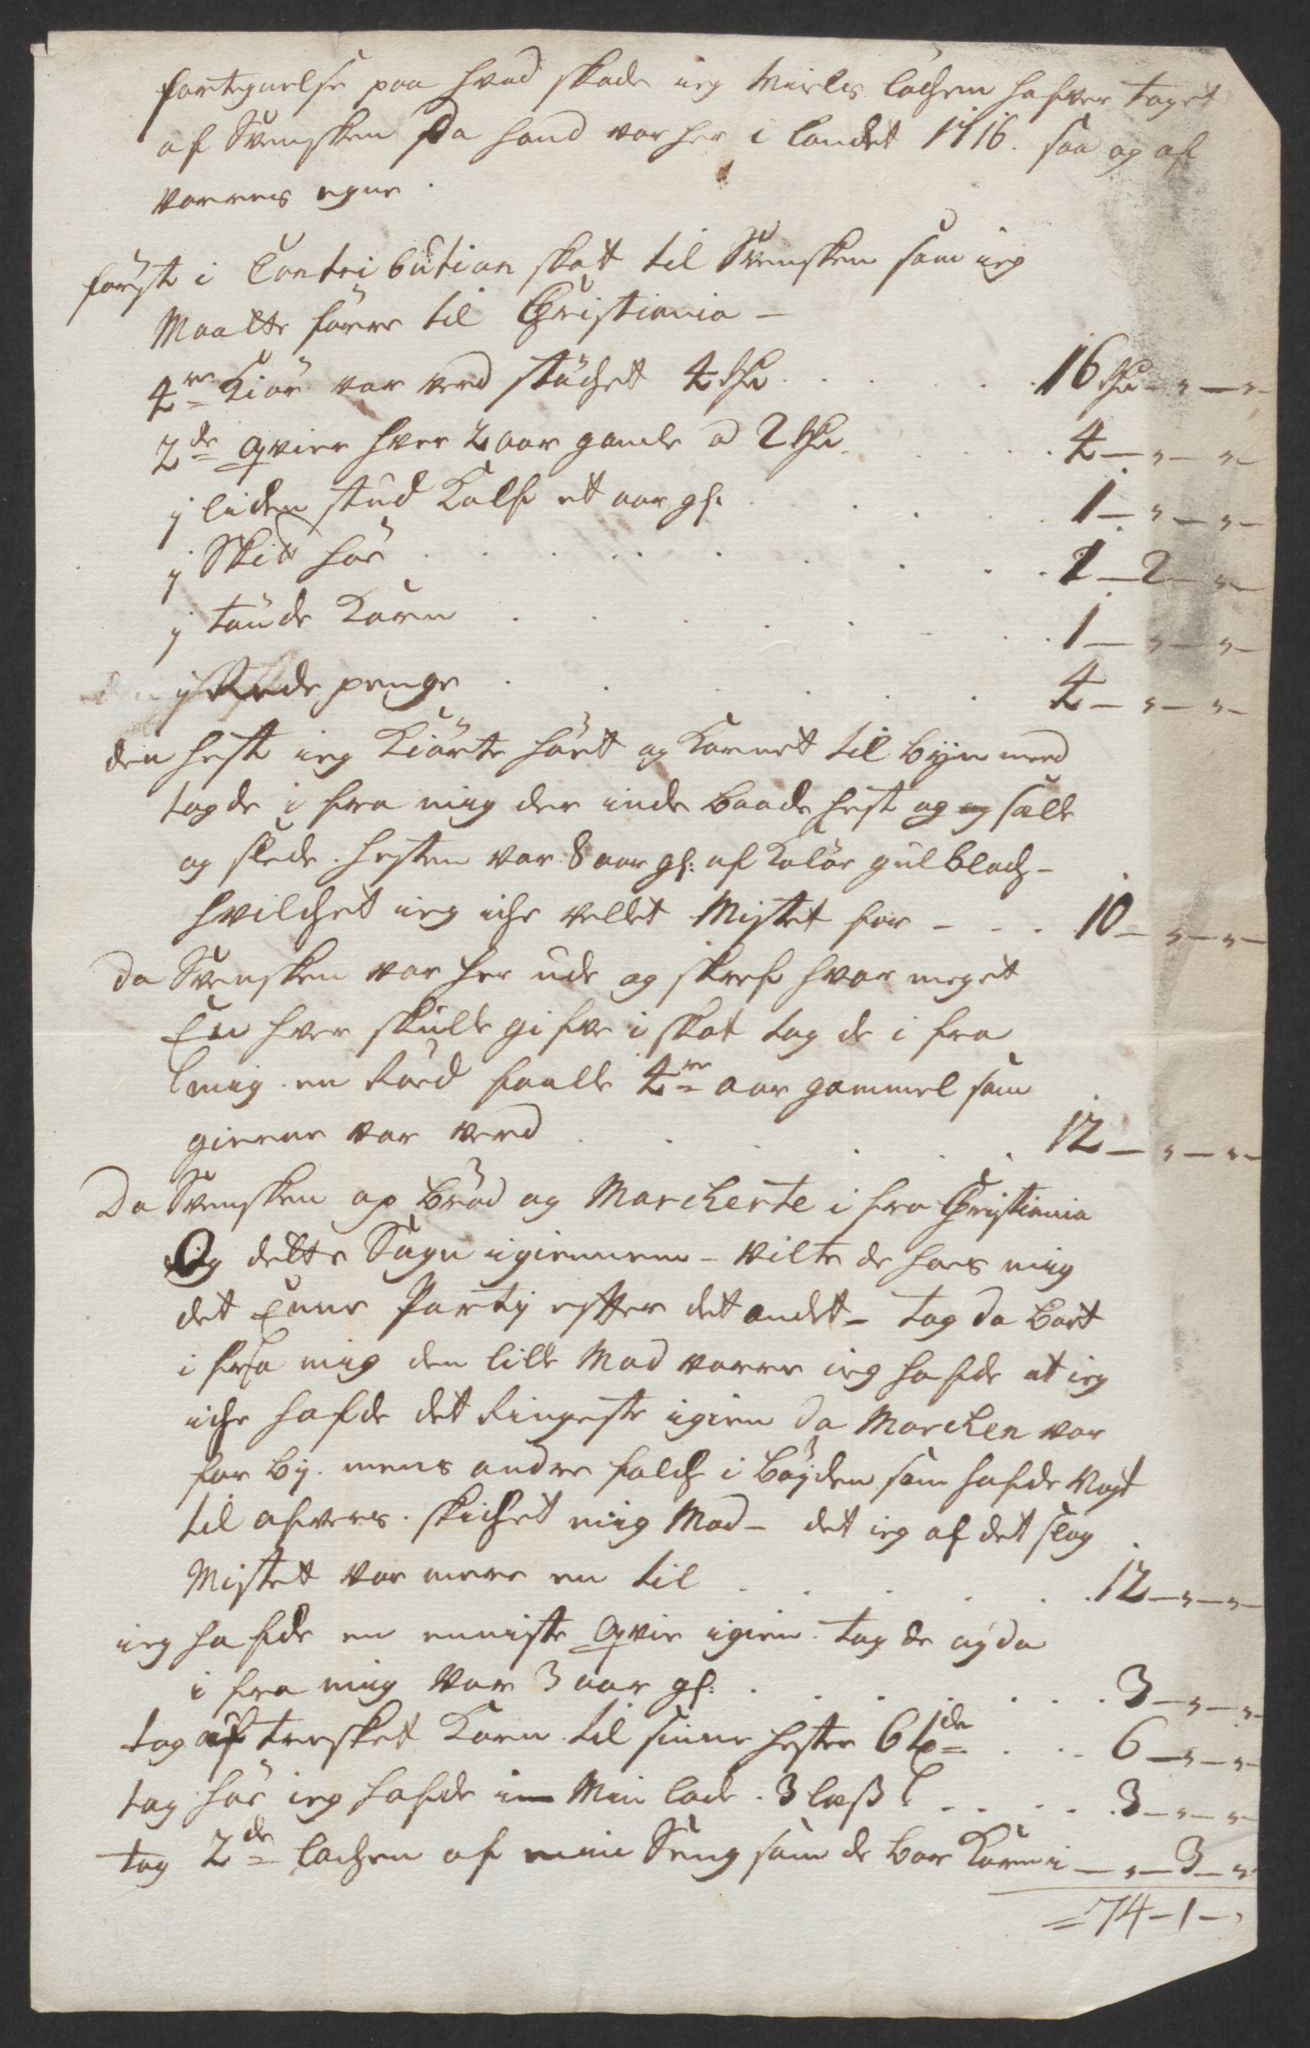 fortegnelse paa hvad skade ieg Niels Lochen hafver taget
af Svensken Da hand var her i Landet 1716. saa og af
vorres egne.
først i Contribution skatt til Svensken som ieg
Maatte føre til Christiania –
4re Kiör var verd støchet 4 rdr . . . 16 rdr – „ – „ –
2de qvier hver 2 aar gamle a 2 rdr . . . 4 – „ – „ –
j liden stud Kalf et aar gl: . . . 1 – „ – „ –
j Skid höe . . . 1 – 2 – „ –
j tønde Korn . . . 1 – „ – „ –
j Rede penge . . . 4 – „ – „ –
den hest ieg Kiörte höet og Kornet til byen med
tog de i fra mig der inde baade hest og sælle
og slede. hesten var 8 aar gl: af Kalör gulblach –
hvilchet ieg iche vellet Mistet for – . . . 10 – „ – „ –
Da Svensken var her ude og skref hvor meget
En hver skulle gifve i skat tog de i fra
mig en Röed faalle 4re aar gammel som
gierne var verd . . . 12 – „ – „ –
Da Svensken op bröd og Marcherte i fra Christiania
Og dette Sogn igiennem – vilte de hoes mig
det Ene Partij efter det andet – tog da bort
i fra mig den lille Mad varre ieg hafde at ieg
iche hafde det Ringeste igien da Marchen var
for bij. mens andre folch i böyden som hafde Nogt
til afvers. skichet mig Mad – det ieg af det slag
Mistet var mere en til . . . 12 – „ – „ –
ieg hafde en enniste qvie igien tog de og da
i fra mig var 3 aar gl: . . . 3 – „ – „ –
tog af tresket Korn til sinne hester 6 tde . . . 6 – „ – „ –
tog höe ieg hafde i Min lade. 3 læß . . . 3 – „ – „ –
tog 2de lachen af min Seng som de bar Korn i – „ – 3 – „
= 74 – 1 – „